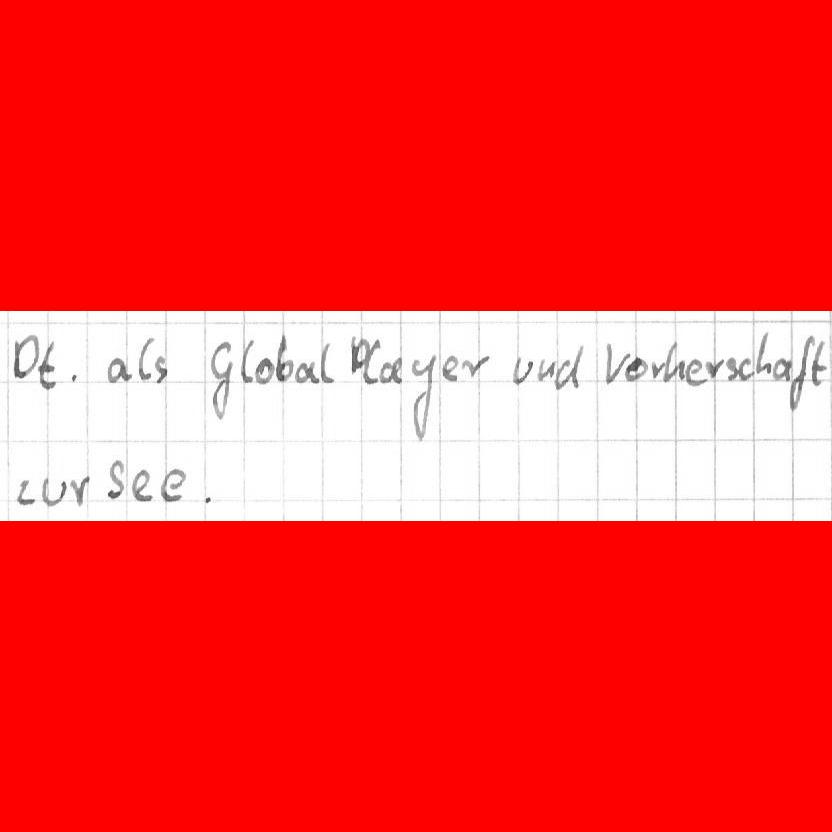 Dt. als Global Player und Vorherschaft
zur See.